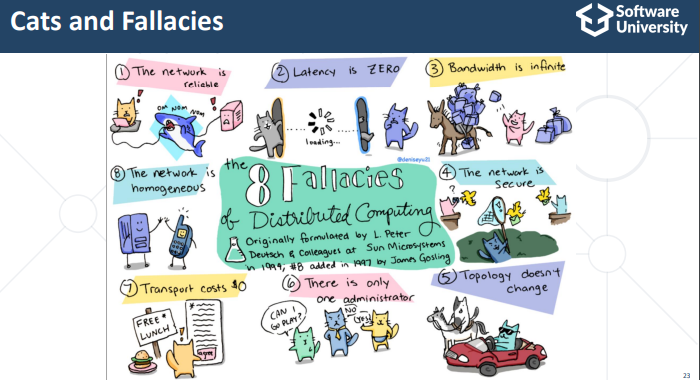 Cats and Fallacies
Software
University
① The network is
reliable
OM NOM NOM
② Latency is ZERO
loading...
@deniseyu21
③ Bandwidth is infinite
⑧ The network is
homogeneous
the
8 Fallacies
of Distributed Computing
Originally formulated by L. Peter
Deutsch & Colleagues at Sun Microsystems
in 1994, #8 added in 1997 by James Gosling
④ The network is
secure
?
⑦ Transport costs $0
FREE*
LUNCH
*
agree
⑥ There is only
one administrator
CAN I
GO PLAY?
NO
YES!
⑤ Topology doesn't
change
23